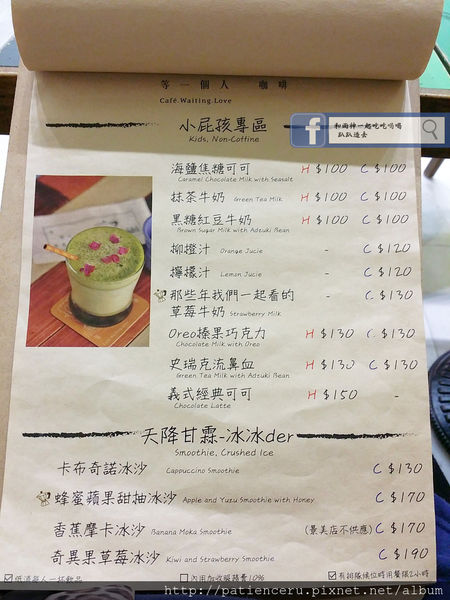 等一個人 咖啡
Café.Waiting.Love
和兩神一起吃吃喝喝
趴趴造去
小屁孩專區
Kids, Non-Coffine
海鹽焦糖可可 H $100 C $100
Caramel Chocolate Milk with Seasalt
抹茶牛奶 Green Tea Milk H $100 C $100
黑糖紅豆牛奶 H $100 C $100
Brown Sugar Milk with Adzuki Bean
柳橙汁 Orange Jucie - C $120
檸檬汁 Lemon Jucie - C $120
那些年我們一起看的 - C $130
草莓牛奶 Strawberry Milk
Oreo榛果巧克力 H $130 C $130
Chocolate Milk with Oreo
史瑞克流鼻血 H $130 C $130
Green Tea Milk with Adzuki Bean
義式經典可可 H $150 -
Chocolate Latte
天降甘霖-冰冰der
Smoothie, Crushed Ice
卡布奇諾冰沙 Cappuccino Smoothie C $130
蜂蜜蘋果甜抽冰沙 Apple and Yuzu Smoothie with Honey C $170
香蕉摩卡冰沙 Banana Moka Smoothie (景美店不供應) C $170
奇異果草莓冰沙 Kiwi and Strawberry Smoothie C $190
低消每人一杯飲品 內用加收服務費10% 有排隊候位時用餐限2小時
http://patienceru.pixnet.net/album